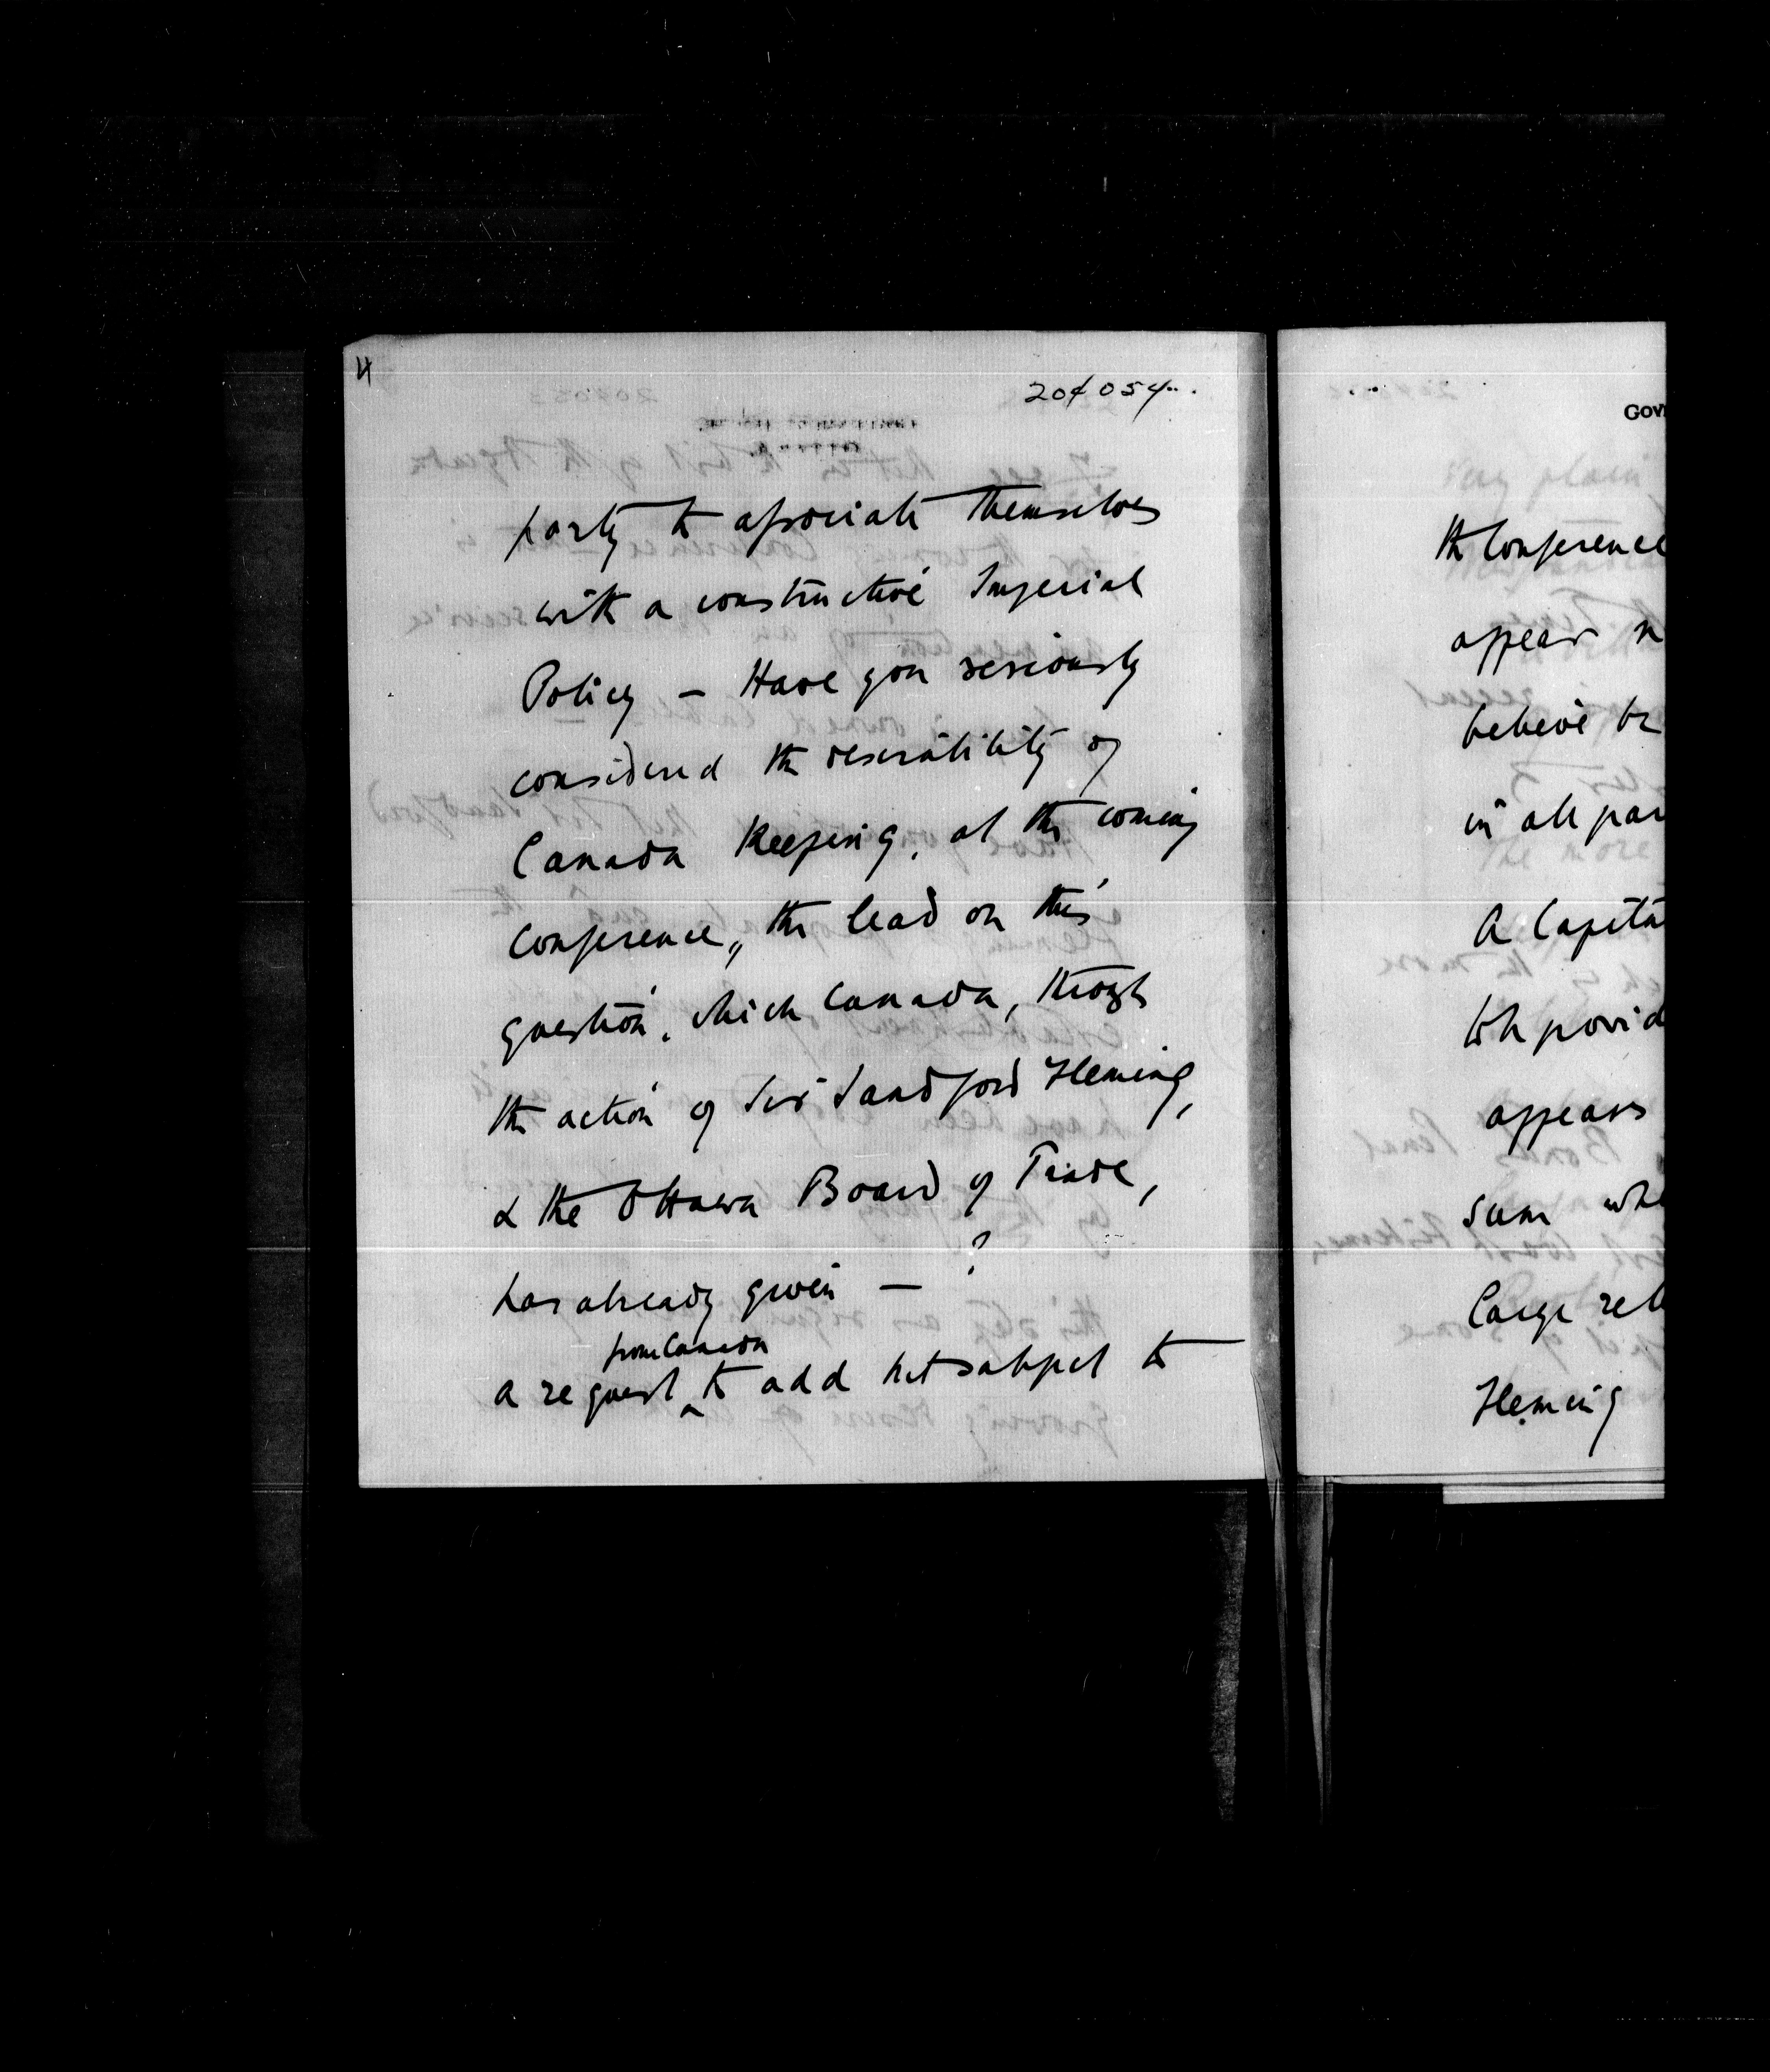 4
204054
party to associate themselves
with a constructive Imperial
Policy — Have you seriously
considered the desirability of
Canada Keeping, at the coming
Conference, the lead on this
question, which Canada, through
the action of Sir Sandford Fleming,
& the Ottawa Board of Trade,
has already given — ?
from Canada
a request to add that subject to
GOV
the Conference
appear
believe
in all
A Capita
to provid
appears
sum
large
Fleming